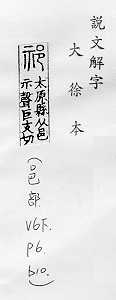 說文解字
大徐本
祁 太原縣从邑
示聲巨支切
(邑部.
V6下.
p6.
b10.)